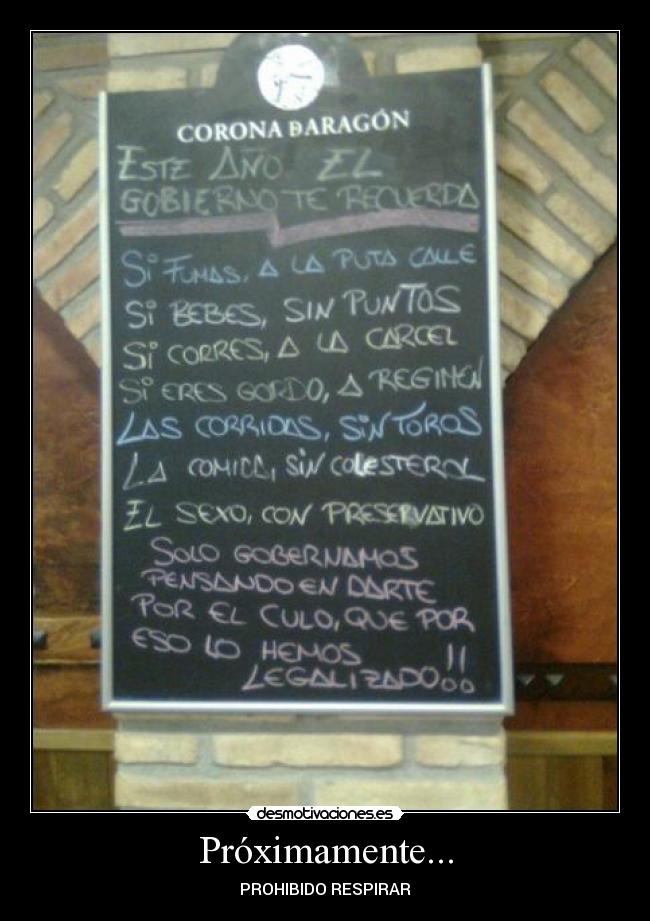 CORONA DARAGÓN
ESTE AÑO EL
GOBIERNO TE RECUERDA
Si FUMAS, A LA PUTA CALLE
Si BEBES, SIN PUNTOS
Si CORRES, A LA CARCEL
Si ERES GORDO, A REGIMEN
LAS CORRIDAS, SiN TOROS
LA COMIDA, SiN COLESTEROL
EL SEXO, CON PRESERVATIVO
SOLO GOBERNAMOS
PENSANDO EN DARTE
POR EL CULO, QUE POR
ESO LO HEMOS
LEGALIZADO!!
desmotivaciones.es
Próximamente...
PROHIBIDO RESPIRAR